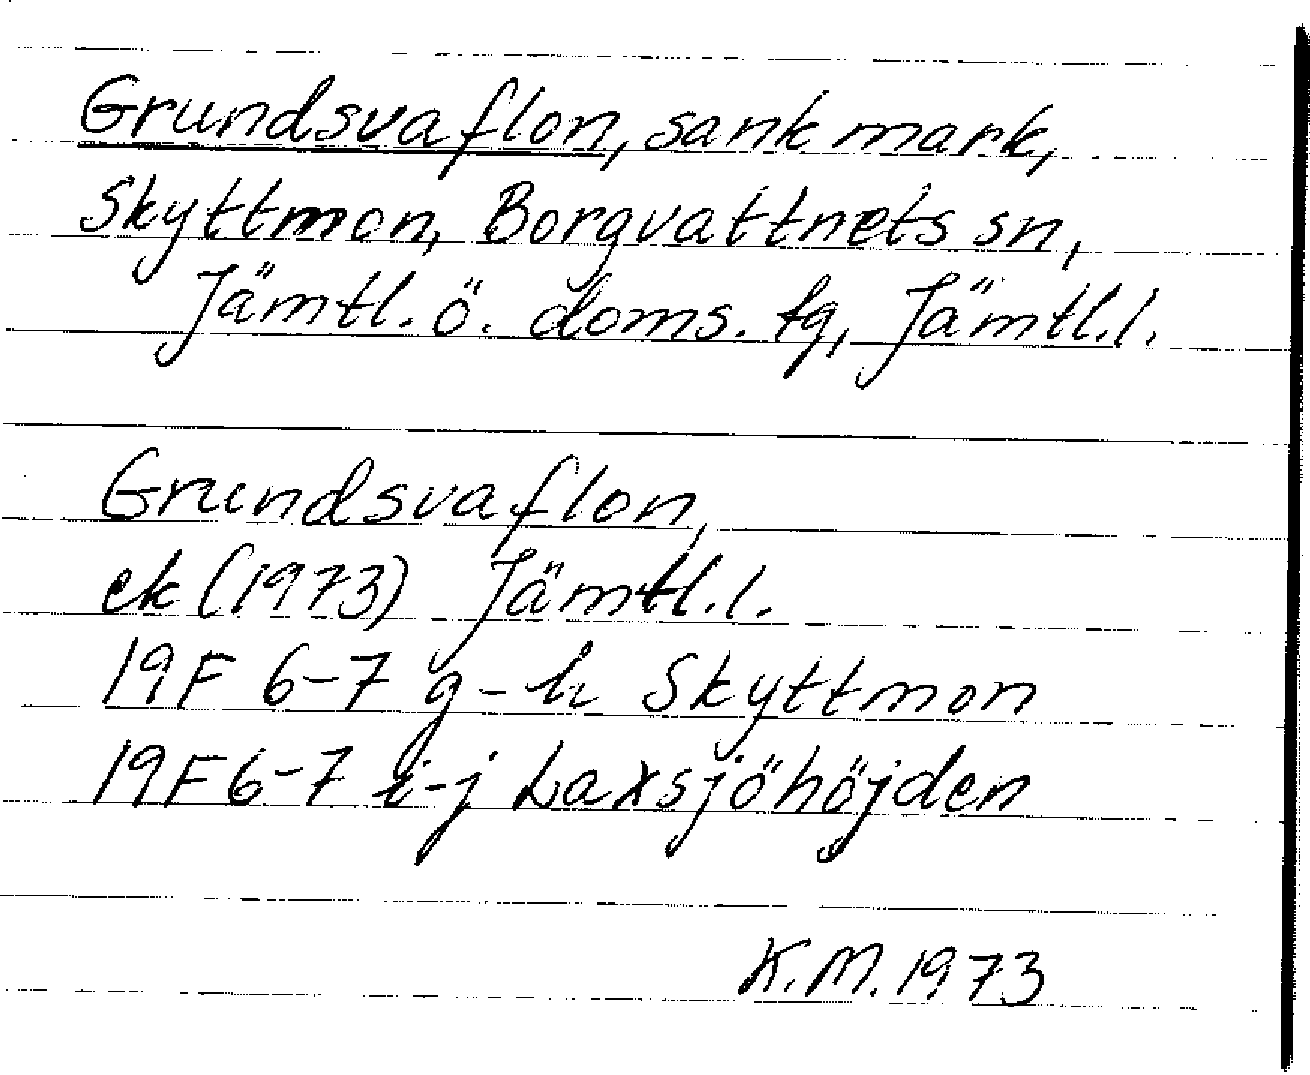 Grundsvaflon, sank mark,
Skyttmon, Borgvattnets sn,
Jämtl. ö. doms. tg, Jämtl.l.
Grundsvaflon,
ek (1973) Jämtl.l.
19F 6-7 g-h Skyttmon
19F 6-7 i-j Laxsjöhöjden
K.M. 1973